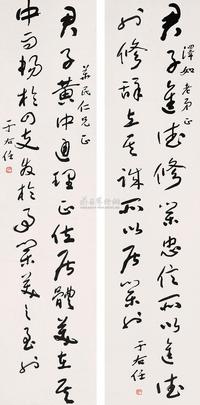 君子進德修業忠信所以進德
澤如老弟正
也修辭立其誠所以居業也
于右任
民仁兄正
君子黃中通理正位居體美在其
中而暢於四支發於事業美之至也
于右任